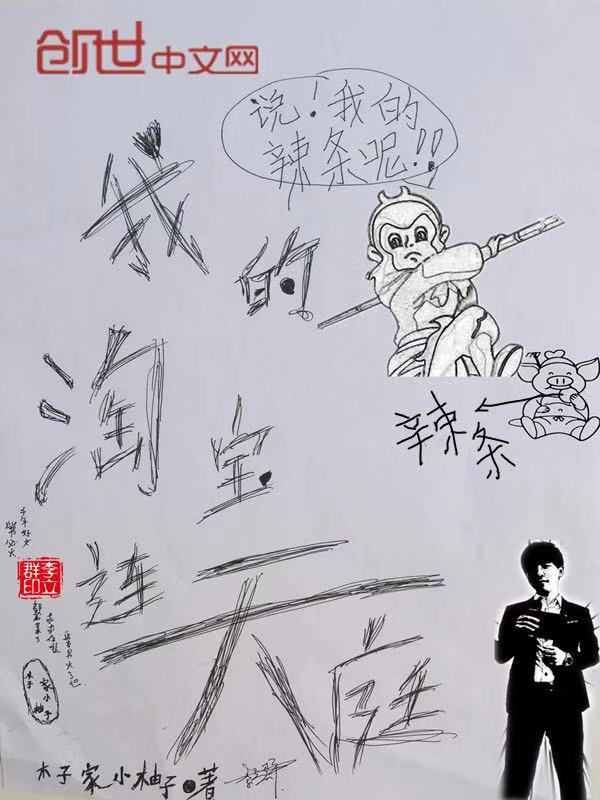 创世中文网
说！我的
辣条呢!!
我的
淘宝
连天庭
辣条
李立群印
木子家小柚子·著